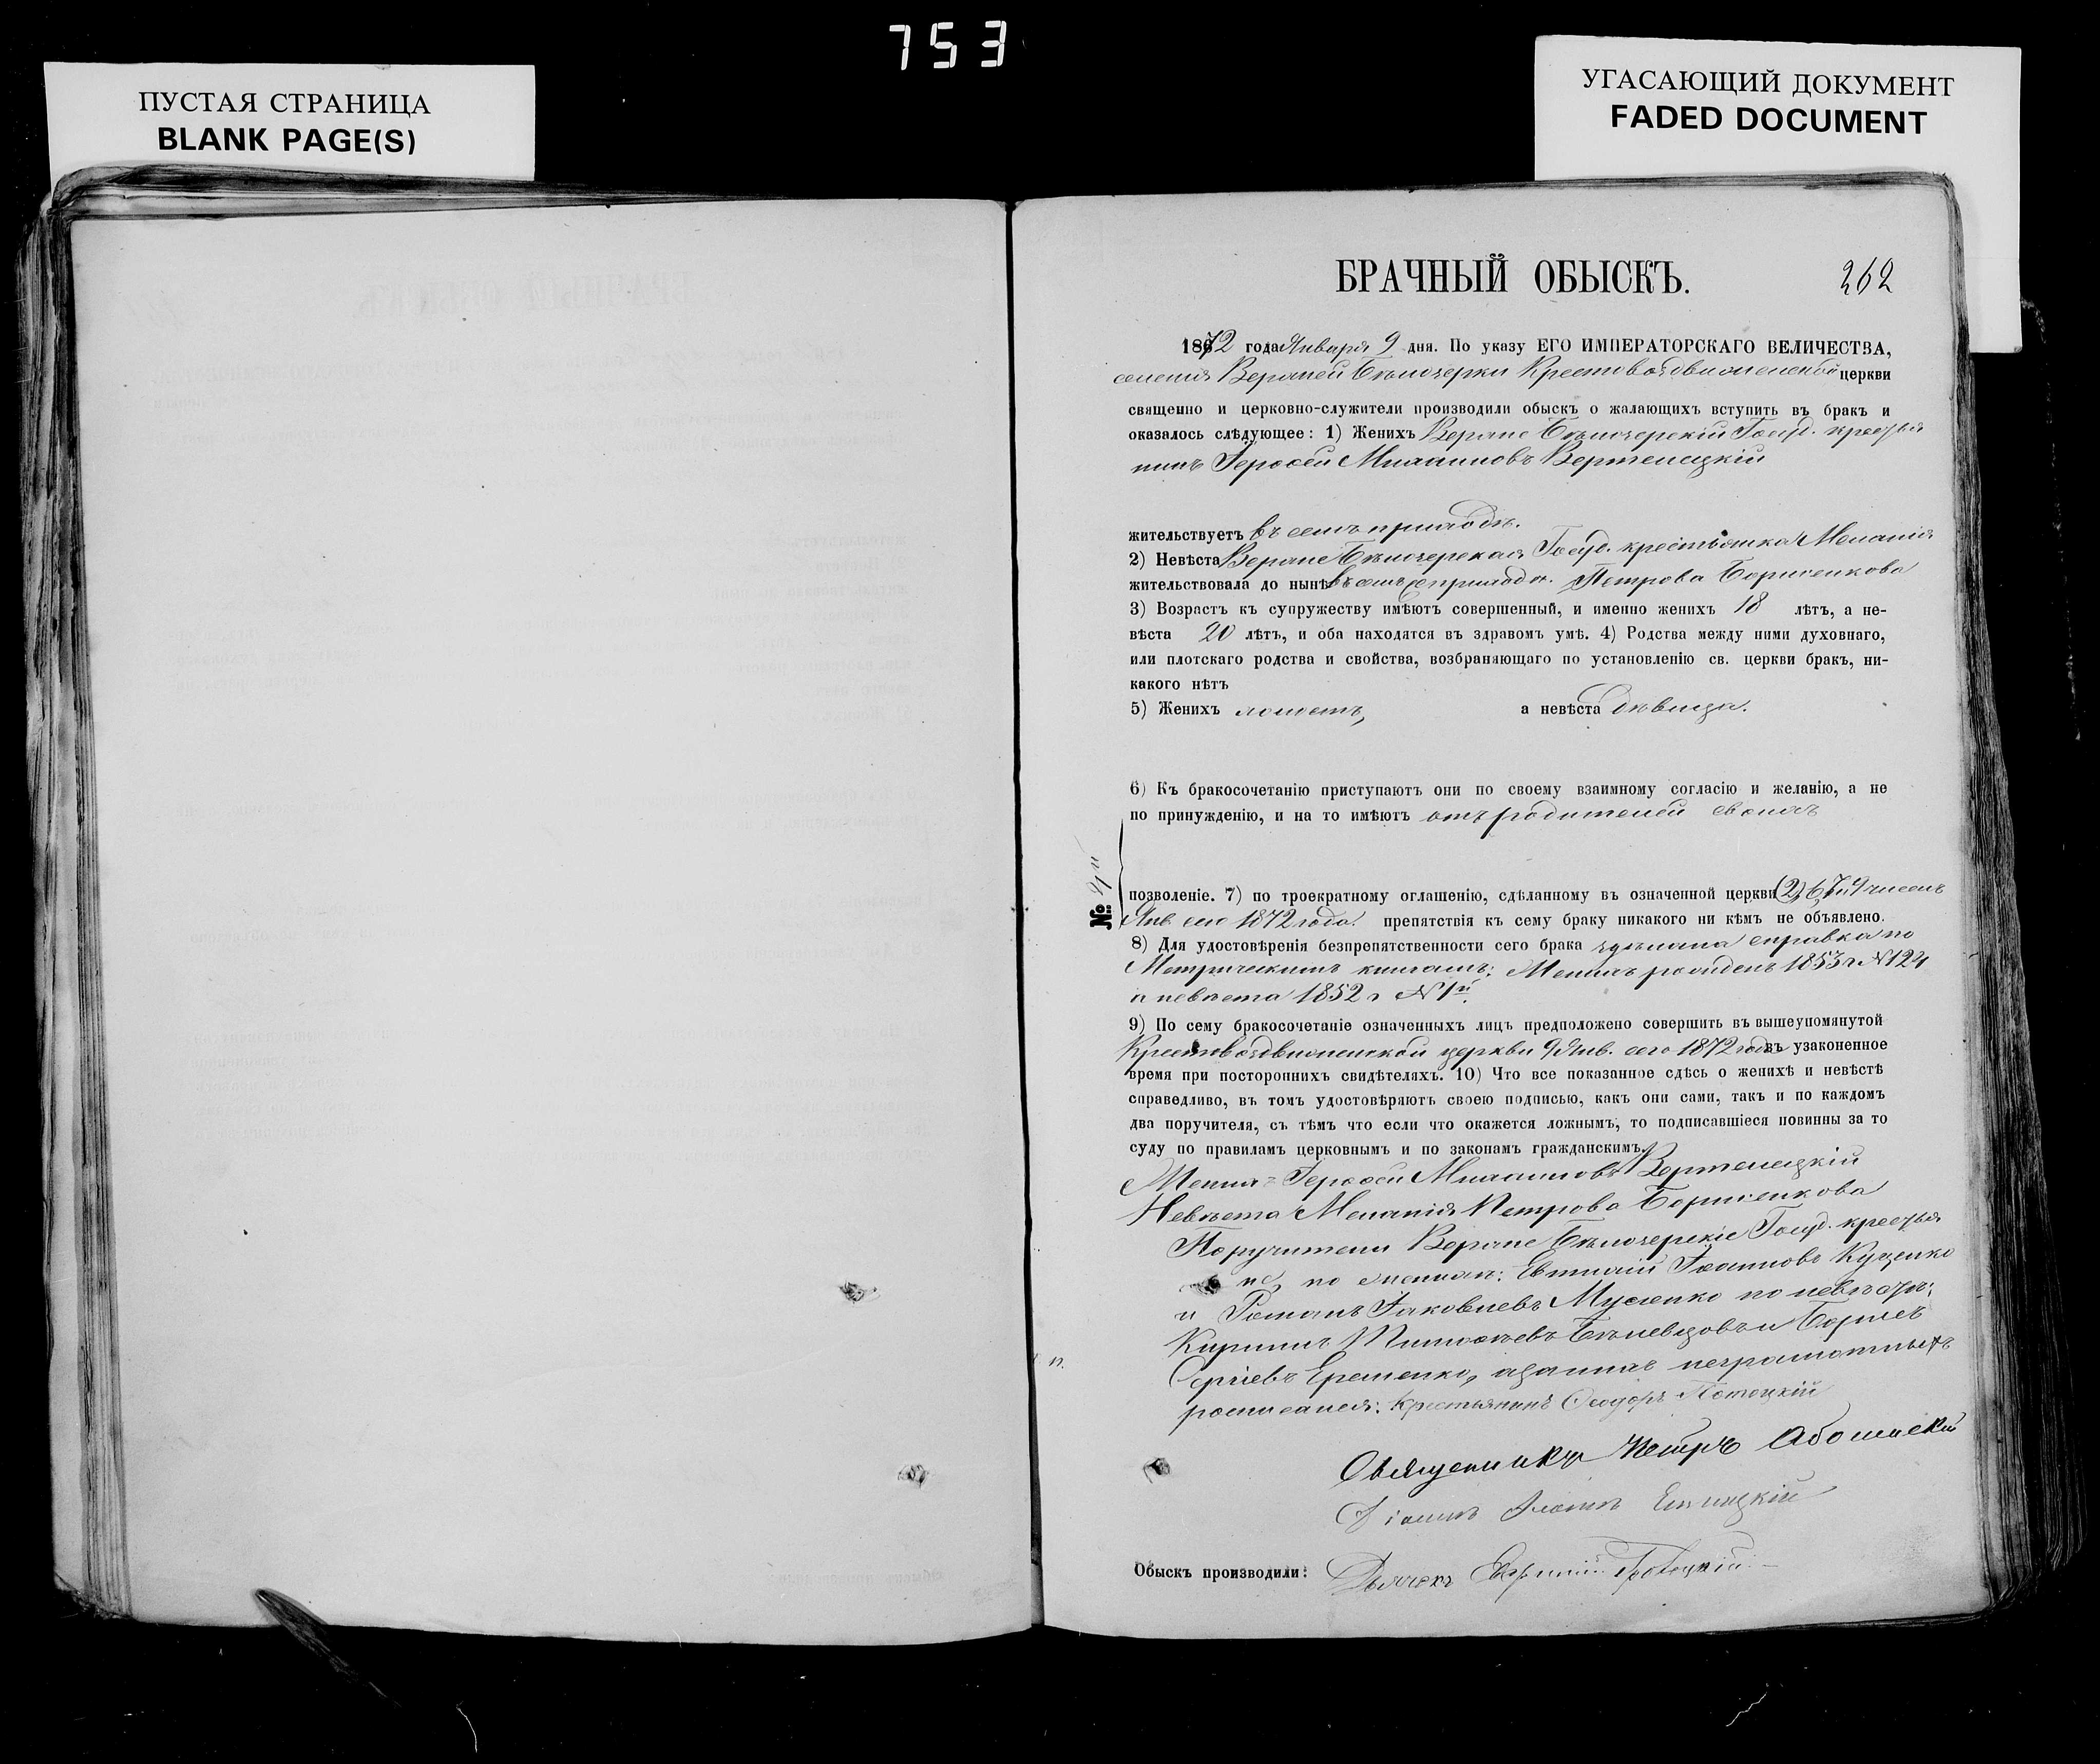 753
ПУСТАЯ СТРАНИЦА
BLANK PAGE(S)
УГАСАЮЩИЙ ДОКУМЕНТ
FADED DOCUMENT
БРАЧНЫЙ ОБЫСКЪ.
262
1872 года Января 9 дня. По указу ЕГО ИМПЕРАТОРСКАГО ВЕЛИЧЕСТВА,
селенія Верхней Бѣлозерки Крестовоздвиженской церкви
священно и церковно-служители производили обыскъ о жалающихъ вступить въ бракъ и
оказалось слѣдующее: 1) Женихъ Верхне Бѣлозерскій Госуд. крестья
нинъ Іерофей Михаиловъ Вертелецкій
жительствуетъ въ семъ приходѣ.
2) Невѣста Верхне Бѣлозерская Госуд. крестьянка Меланія
жительствовала до нынѣ въ семъ приходѣ. Петрова Борисенкова
3) Возрастъ къ супружеству имѣютъ совершенный, и именно женихъ 18 лѣтъ, а не-
вѣста 20 лѣтъ, и оба находятся въ здравомъ умѣ. 4) Родства между ними духовнаго,
или плотскаго родства и свойства, возбраняющаго по установленію св. церкви бракъ, ни-
какого нѣтъ
5) Женихъ холостъ, а невѣста дѣвица.
6) Къ бракосочетанію приступаютъ они по своему взаимному согласію и желанію, а не
по принужденію, и на то имѣютъ отъ родителей своихъ
позволеніе. 7) по троекратному оглашенію, сдѣланному въ означенной церкви 2, 6, 7 и 9 чиселъ
№: 4й
Янв. сего 1872 года. препятствія къ сему браку никакого ни кѣмъ не объявлено.
8) Для удостовѣренія безпрепятственности сего брака здѣлана справка по
Метрическимъ книгамъ: Женихъ рожденъ 1853 г. № 124
а невѣста 1852 г. № 1й.
9) По сему бракосочетаніе означенныхъ лицъ предположено совершить въ вышеупомянутой
Крестовоздвиженской церкви 9 Янв. сего 1872 года въ узаконенное
время при посторонних свидѣтеляхъ. 10) Что все показанное сдѣсь о женихѣ и невѣстѣ
справедливо, въ томъ удостовѣряютъ своею подписью, какъ они сами, такъ и по каждомъ
два поручителя, съ тѣмъ что если что окажется ложнымъ, то подписавшіеся повинны за то
суду по правиламъ церковнымъ и по законамъ гражданскимъ.
Женихъ Іерофей Михаиловъ Вертелецкій
Невѣста Меланія Петрова Борисенкова
Поручители Верхне Бѣлозерскіе Госуд. крестья
не, по женихѣ: Евтихій Іоанновъ Куценко
и Романъ Іаковлевъ Мусіенко по невѣстѣ:
Кириллъ Тимофѣевъ Бѣлевцовъ и Борисъ
Сергіевъ Еременко, а за нихъ неграмотныхъ
росписался: Крестьянинъ Феодоръ Потоцкій
Священникъ Петръ
Дьячекъ
Обыскъ производили: